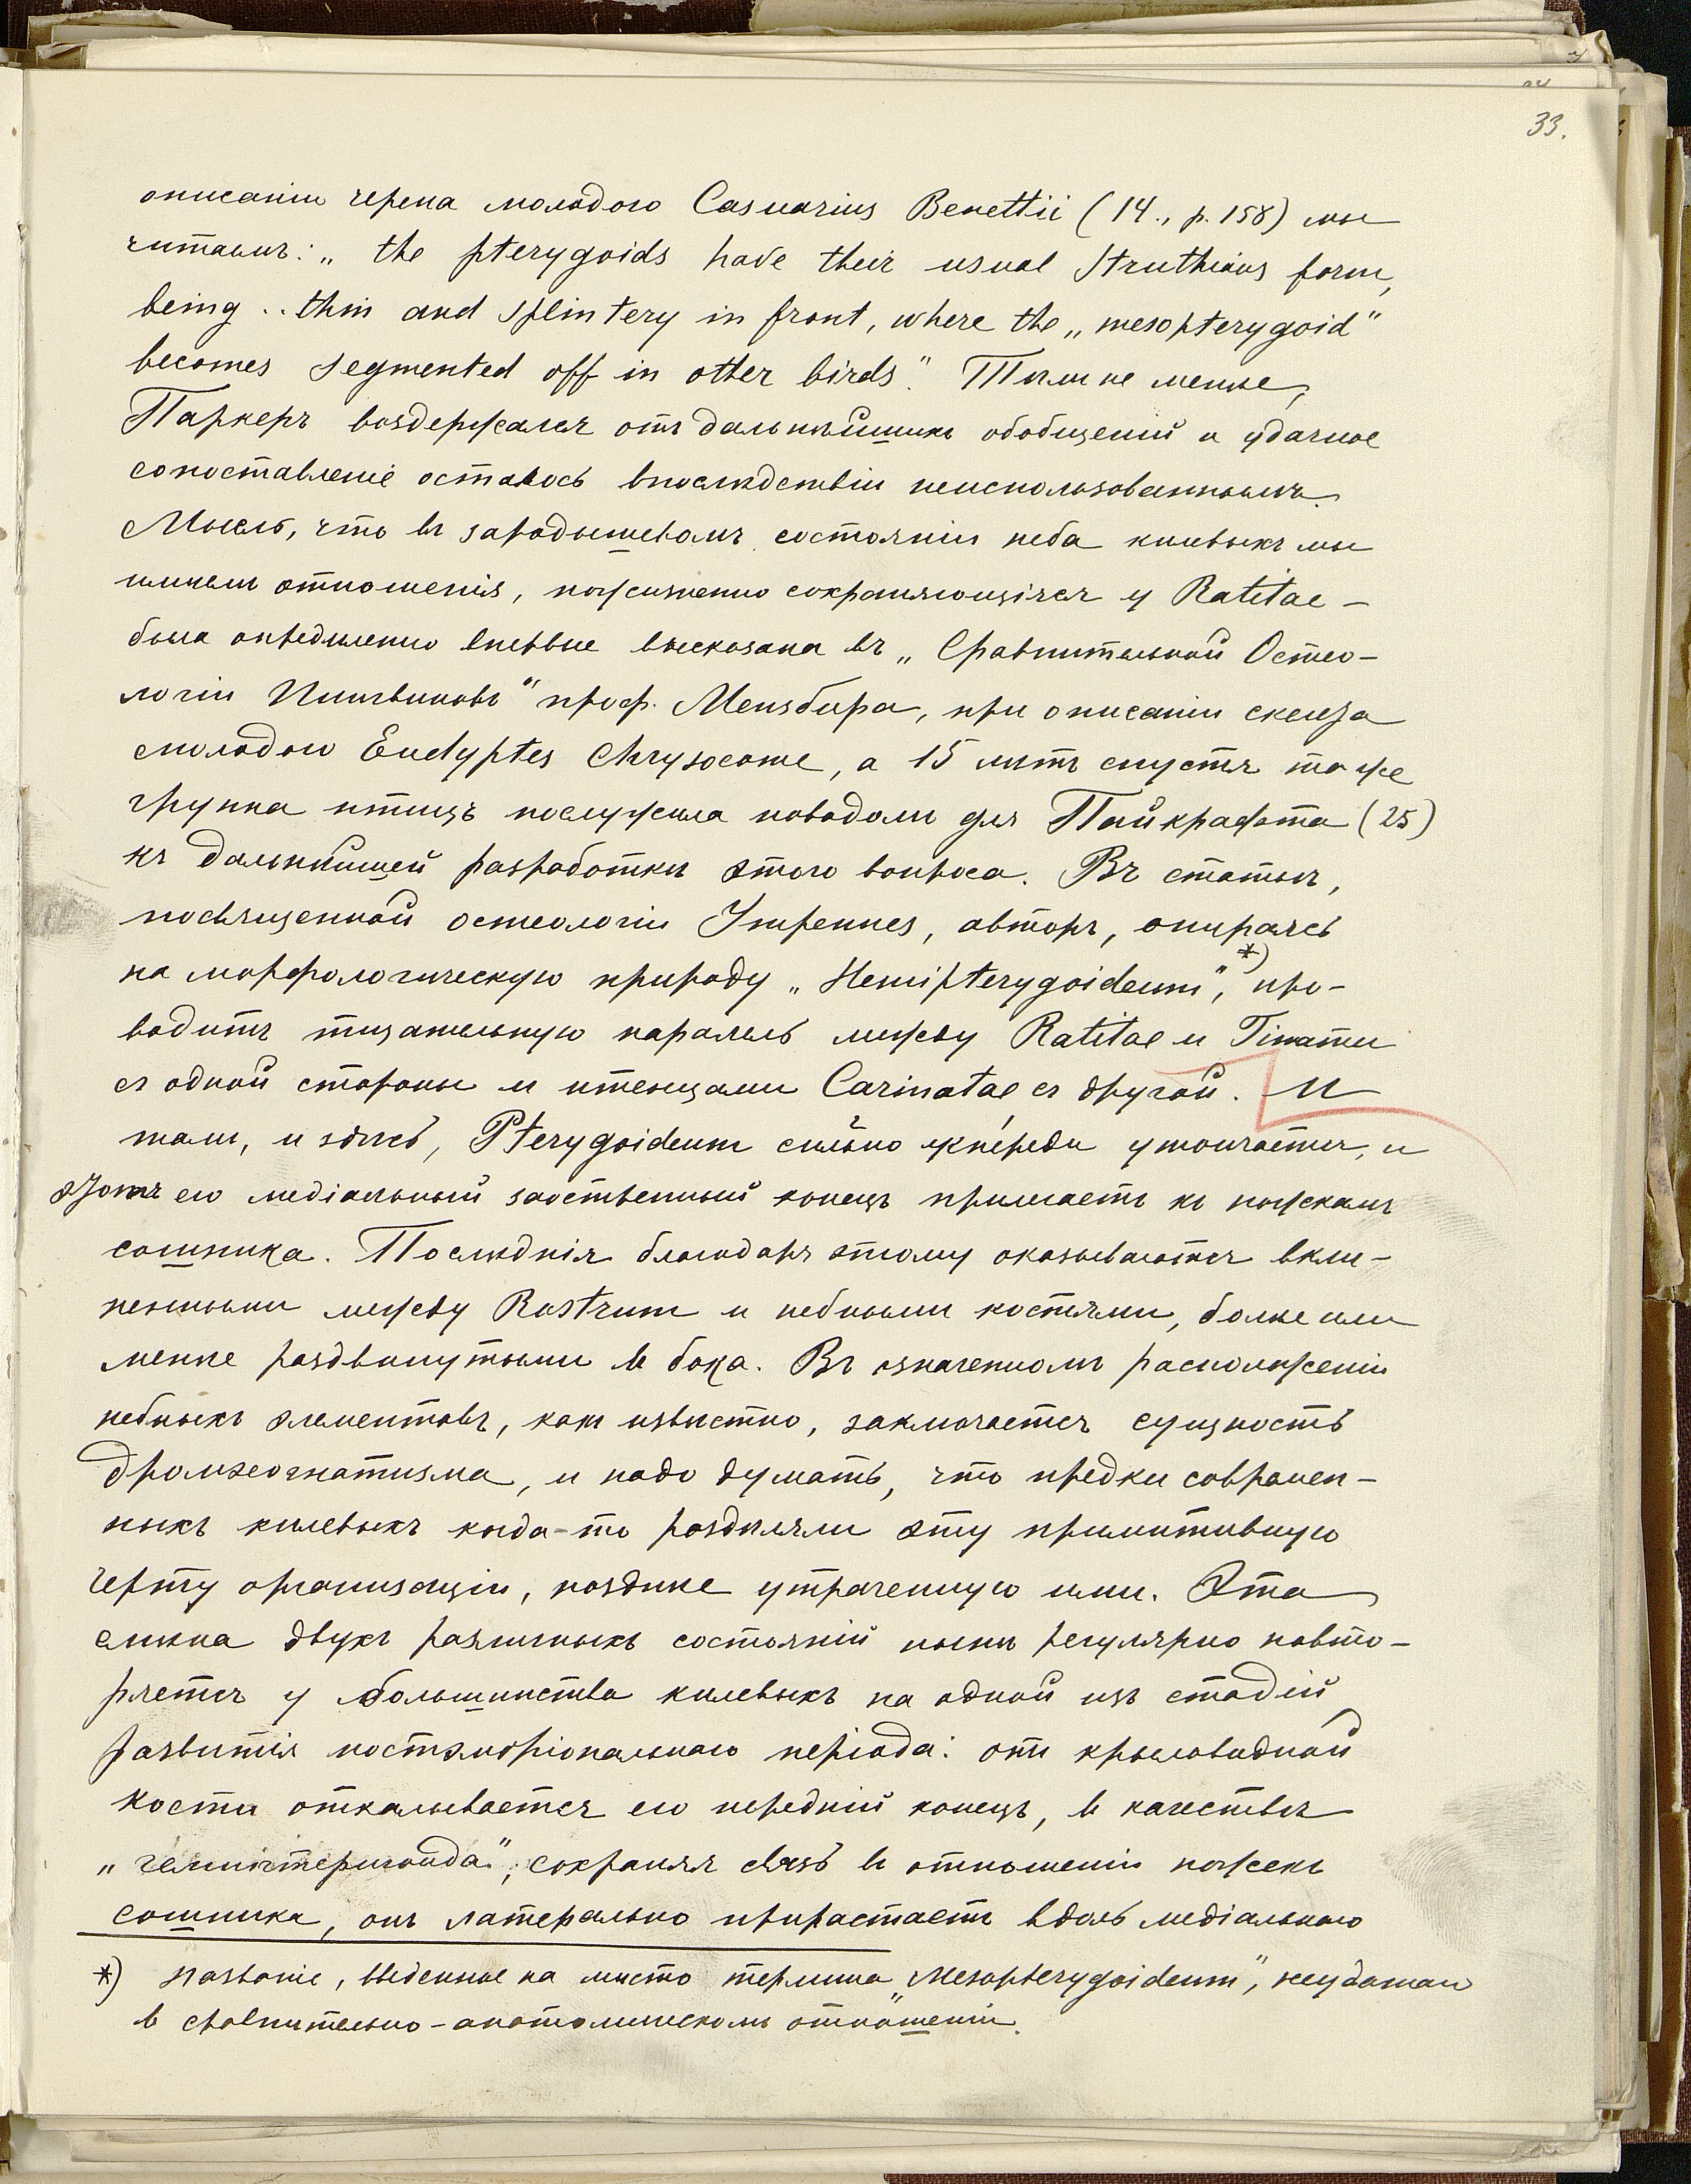 33.
описанiи черепа молодого Casuarius Benettii (14., p. 158) мы
читаемъ: „ the pterygoids have their usual Struthious form,
being .. thin and splintery in front, where the „ mesopterygoid“
becomes segmented off in other birds“. Тѣмъ не менѣе,
Паркеръ воздержался отъ дальнѣйшихъ обобщенiй и удачное
сопоставленiе осталось впослѣдствiи неиспользованнымъ.
Мысль, что въ зародышевомъ состоянiи неба килевыхъ мы
имѣемъ отношенiя, пожизненно сохраняющiяся у Ratitae –
была опредѣленно впервые высказана въ „ Сравнительной Остео-
логiи Пингвиновъ“ проф. Мензбира, при описанiи скелета
молодого Eudyptes Chrysocome, а 15 лѣтъ спустя та же
группа птицъ послужила поводомъ для Пайкрафта (25)
къ дальнѣйшей разработкѣ этого вопроса. Въ статьѣ,
посвященной остеологiи Impennes, авторъ, опираясь
на морфологическую природу „ Hemipterygoideum“, *) про-
водитъ тщательную паралель между Ratitae и Tinami
съ одной стороны и птенцами Carinatae съ другой. И
тамъ, и здѣсь, Pterygoideum сильно кпереди утончается, и
этотъ его медiальный заостренный конецъ прилегаетъ къ ножкамъ
сошника. Послѣднiя благодаря этому оказываются вкли-
ненными между Rostrum и небными костями, болѣе или
менѣе раздвинутыми въ бока. Въ означенномъ расположенiи
небныхъ элементовъ, какъ извѣстно, заключается сущность
дромэогнатизма, и надо думать, что предки современ-
ныхъ килевыхъ когда-то раздѣляли эту примитивную
черту организацiи, позднѣе утраченную ими. Эта
смѣна двухъ различныхъ состоянiй нынѣ регулярно повто-
ряется у большинства килевыхъ на одной изъ стадiй
развитiя постэмбрiональнаго перiода: отъ крыловидной
кости откалывается его переднiй конецъ, въ качествѣ
„ гемиптеригоида“; сохраняя связь въ отношенiи ножекъ
сошника, онъ латерально прирастаетъ вдоль медiальнаго
*) Названiе, введенное на мѣсто термина „Mesopterygoideum“, неудачнаго
въ сравнительно-анатомическомъ отношенiи.